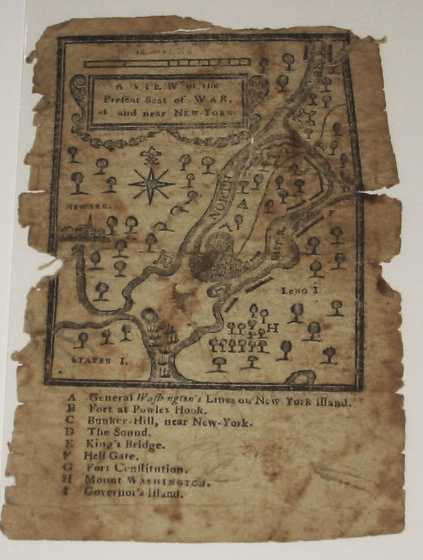 A VIEW of the
Present Seat of WAR,
at and near NEW-YORK.
NEWARK.
NORTH
A
EAST R.
LONG I.
H
STATEN I.
A General Washington's Lines on New York Island.
B Fort at Powles Hook.
C Bunker-Hill, near New-York.
D The Sound.
E King's Bridge.
F Hell Gate.
G Fort Constitution.
H Mount WASHINGTON.
I Governor's Island.